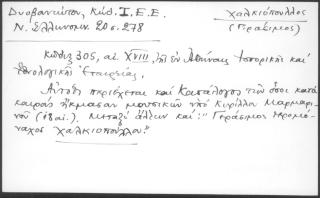 Δυοβουνιώτου, Κώδ. Ι. Ε. Ε.
Ν. Ἑλληνομν. 20 σ. 278
Χαλκιόπουλλος
(Γεράσιμος)
Κώδιξ 305, αἰ. XVIII, τῆς ἐν Ἀθήναις Ἱστορικῆς καὶ
Ἐθνολογικῆς Ἑταιρείας.
Αὐτόθι περιέχεται καὶ Κατάλογος τῶν ὅσοι κατὰ
καιροὺς ἤκμασαν μουσικῶν ὑπὸ Κυρίλλου Μαρμαρι-
νοῦ Μεταξὺ ἄλλων καὶ: "Γεράσιμος ἱερομό-
ναχος Χαλκιόπουλλος."